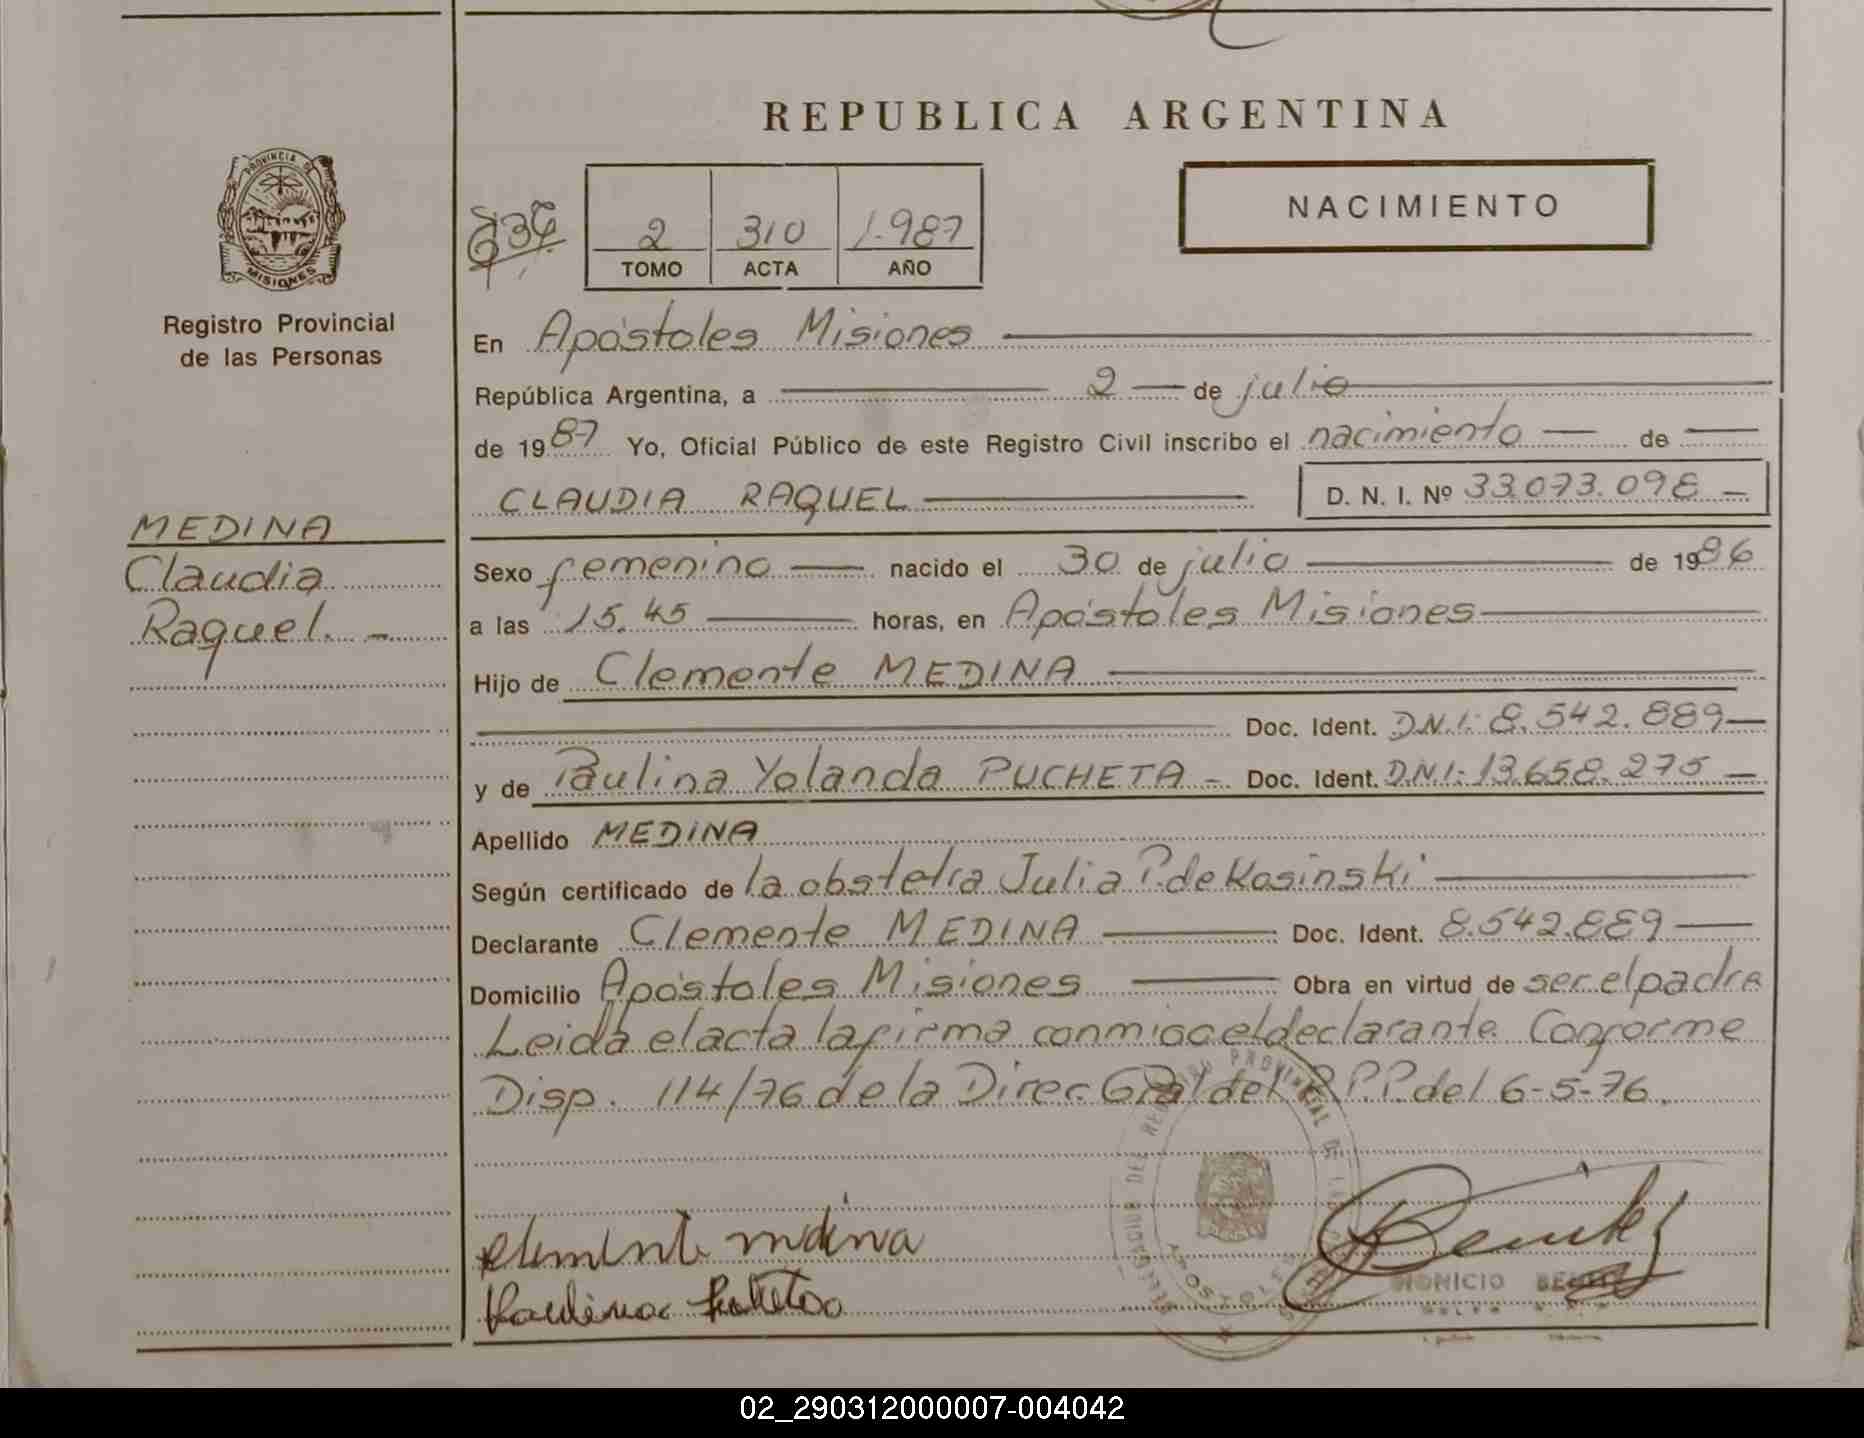 REPUBLICA ARGENTINA
PROVINCIA DE
MISIONES
Registro Provincial
de las Personas
2 310 1.987
TOMO ACTA AÑO
NACIMIENTO
En Apóstoles Misiones
República Argentina, a 2 de julio
de 1987 Yo, Oficial Público de este Registro Civil inscribo el nacimiento de
CLAUDIA RAQUEL D. N. I. Nº 33.073.098
MEDINA
Claudia
Raquel.
Sexo femenino nacido el 30 de julio de 1986
a las 15.45 horas, en Apóstoles Misiones
Hijo de Clemente MEDINA
Doc. Ident. D.N.I: 8.542.889
y de Paulina Yolanda PUCHETA Doc. Ident. D.N.I: 13.658.275
Apellido MEDINA
Según certificado de la obstetra Julia P. de Kosinski
Declarante Clemente MEDINA Doc. Ident. 8.542.889
Domicilio Apóstoles Misiones Obra en virtud de ser el padre
Leida el acta la firma conmigo el declarante. Conforme
Disp. 114/76 de la Direc. Gral del R.P.P. del 6-5-76.
PROVINCIAL DE
DELEGACION DEL
clemente medina
Paulina
DIONICIO
02_290312000007-004042